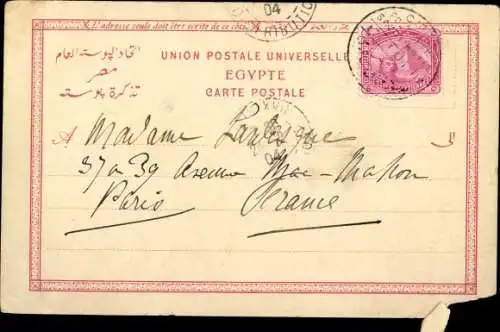 L'adresse seule doit être écrite de ce côté
04
UNION POSTALE UNIVERSELLE
EGYPTE
CARTE POSTALE
اتحاد البوسته العام
مصر
تذكرة بوسته
A Madame
37 ou 39 Avenue Mac-Mahon
Paris France
04